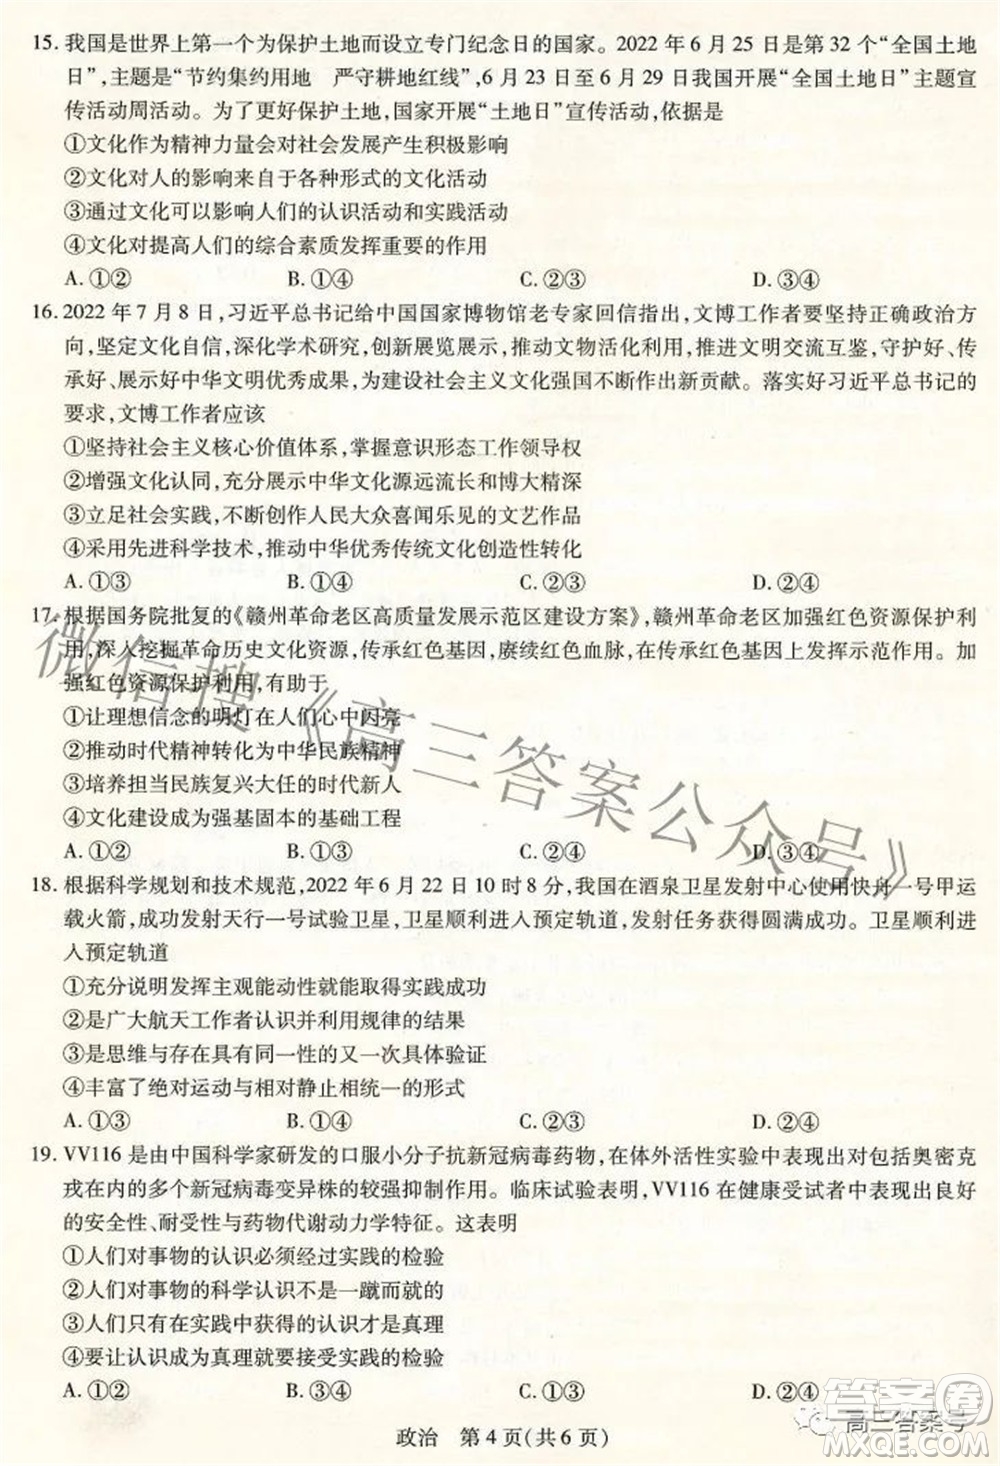 15. 我国是世界上第一个为保护土地而设立专门纪念日的国家。2022 年 6 月 25 日是第 32 个“全国土地
日”,主题是“节约集约用地　严守耕地红线”,6 月 23 日至 6 月 29 日我国开展“全国土地日”主题宣
传活动周活动。为了更好保护土地,国家开展“土地日”宣传活动,依据是
①文化作为精神力量会对社会发展产生积极影响
②文化对人的影响来自于各种形式的文化活动
③通过文化可以影响人们的认识活动和实践活动
④文化对提高人们的综合素质发挥重要的作用
A. ①② B. ①④ C. ②③ D. ③④
16. 2022 年 7 月 8 日,习近平总书记给中国国家博物馆老专家回信指出,文博工作者要坚持正确政治方
向,坚定文化自信,深化学术研究,创新展览展示,推动文物活化利用,推进文明交流互鉴,守护好、传
承好、展示好中华文明优秀成果,为建设社会主义文化强国不断作出新贡献。落实好习近平总书记的
要求,文博工作者应该
①坚持社会主义核心价值体系,掌握意识形态工作领导权
②增强文化认同,充分展示中华文化源远流长和博大精深
③立足社会实践,不断创作人民大众喜闻乐见的文艺作品
④采用先进科学技术,推动中华优秀传统文化创造性转化
A. ①③ B. ①④ C. ②③ D. ②④
17. 根据国务院批复的《赣州革命老区高质量发展示范区建设方案》,赣州革命老区加强红色资源保护利
用,深入挖掘革命历史文化资源,传承红色基因,赓续红色血脉,在传承红色基因上发挥示范作用。加
强红色资源保护利用,有助于
①让理想信念的明灯在人们心中闪亮
②推动时代精神转化为中华民族精神
③培养担当民族复兴大任的时代新人
④文化建设成为强基固本的基础工程
A. ①② B. ①③ C. ②④ D. ③④
18. 根据科学规划和技术规范,2022 年 6 月 22 日 10 时 8 分,我国在酒泉卫星发射中心使用快舟一号甲运
载火箭,成功发射天行一号试验卫星,卫星顺利进入预定轨道,发射任务获得圆满成功。卫星顺利进
入预定轨道
①充分说明发挥主观能动性就能取得实践成功
②是广大航天工作者认识并利用规律的结果
③是思维与存在具有同一性的又一次具体验证
④丰富了绝对运动与相对静止相统一的形式
A. ①③ B. ①④ C. ②③ D. ②④
19. VV116 是由中国科学家研发的口服小分子抗新冠病毒药物,在体外活性实验中表现出对包括奥密克
戎在内的多个新冠病毒变异株的较强抑制作用。临床试验表明,VV116 在健康受试者中表现出良好
的安全性、耐受性与药物代谢动力学特征。这表明
①人们对事物的认识必须经过实践的检验
②人们对事物的科学认识不是一蹴而就的
③人们只有在实践中获得的认识才是真理
④要让认识成为真理就要接受实践的检验
A. ①② B. ③④ C. ①③ D. ②④
政治　第 4 页(共 6 页)
微信搜《高三答案公众号》
高三答案号
答案圈
MXQE.COM